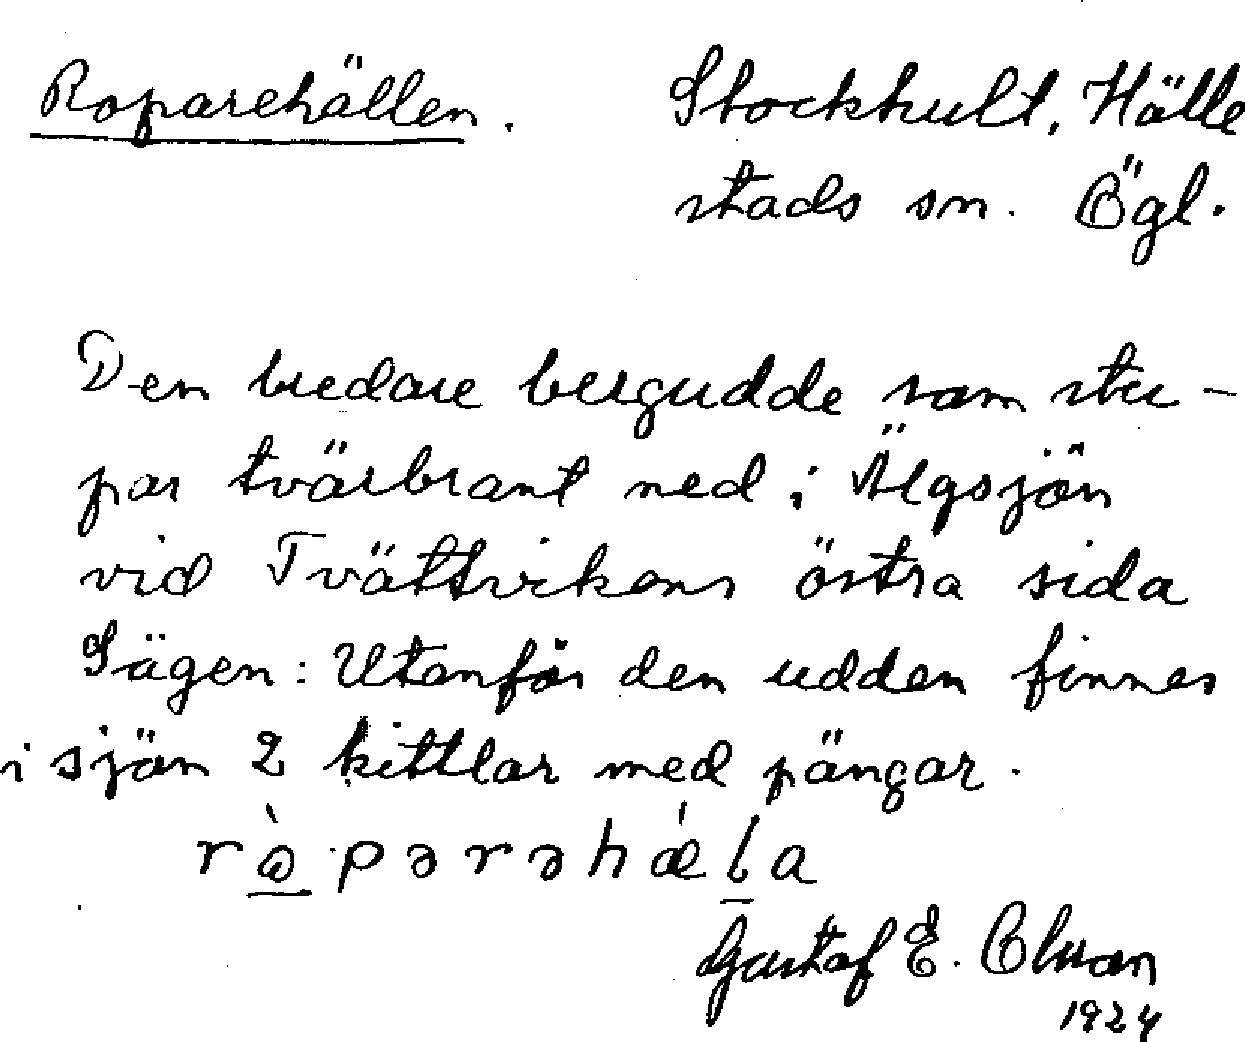 Roparehällen. Stockhult, Hälle
stads sn. Ögl.
Den bredare bergudde som stu-
par tvärbrant ned i Älgsjön
vid Tvättvikens östra sida
Sägen: Utanför den udden finnes
i sjön 2 kittlar med pängar.
Gustaf E.
1924